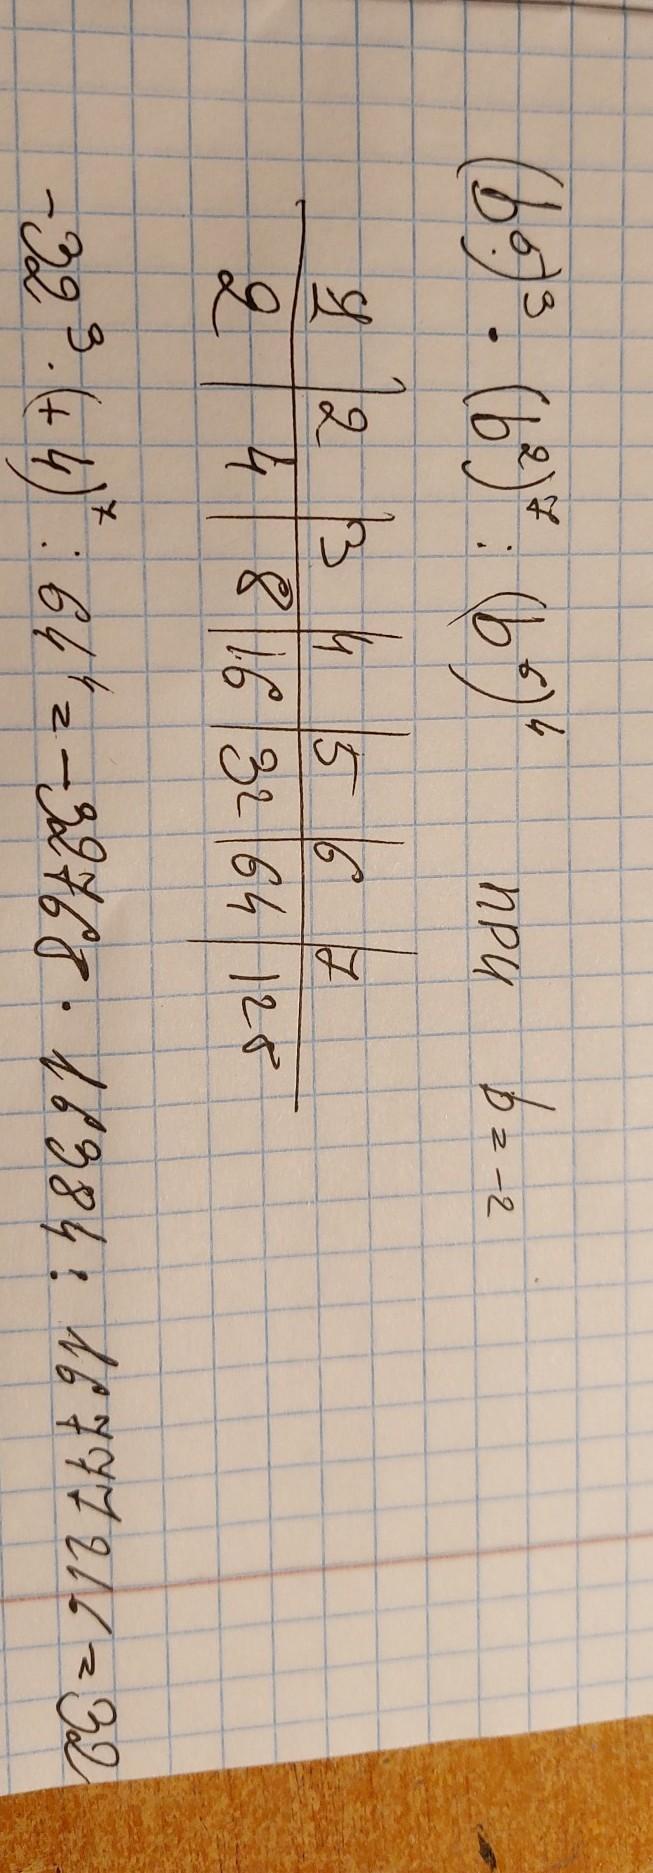 (b⁵)³ · (b²)⁷ : (b⁶)⁴ при b = -2
1 2 3 4 5 6 7
2 4 8 16 32 64 128
-32³ · (+4)⁷ : 64⁴ = -32768 · 16384 : 16777216 = 32